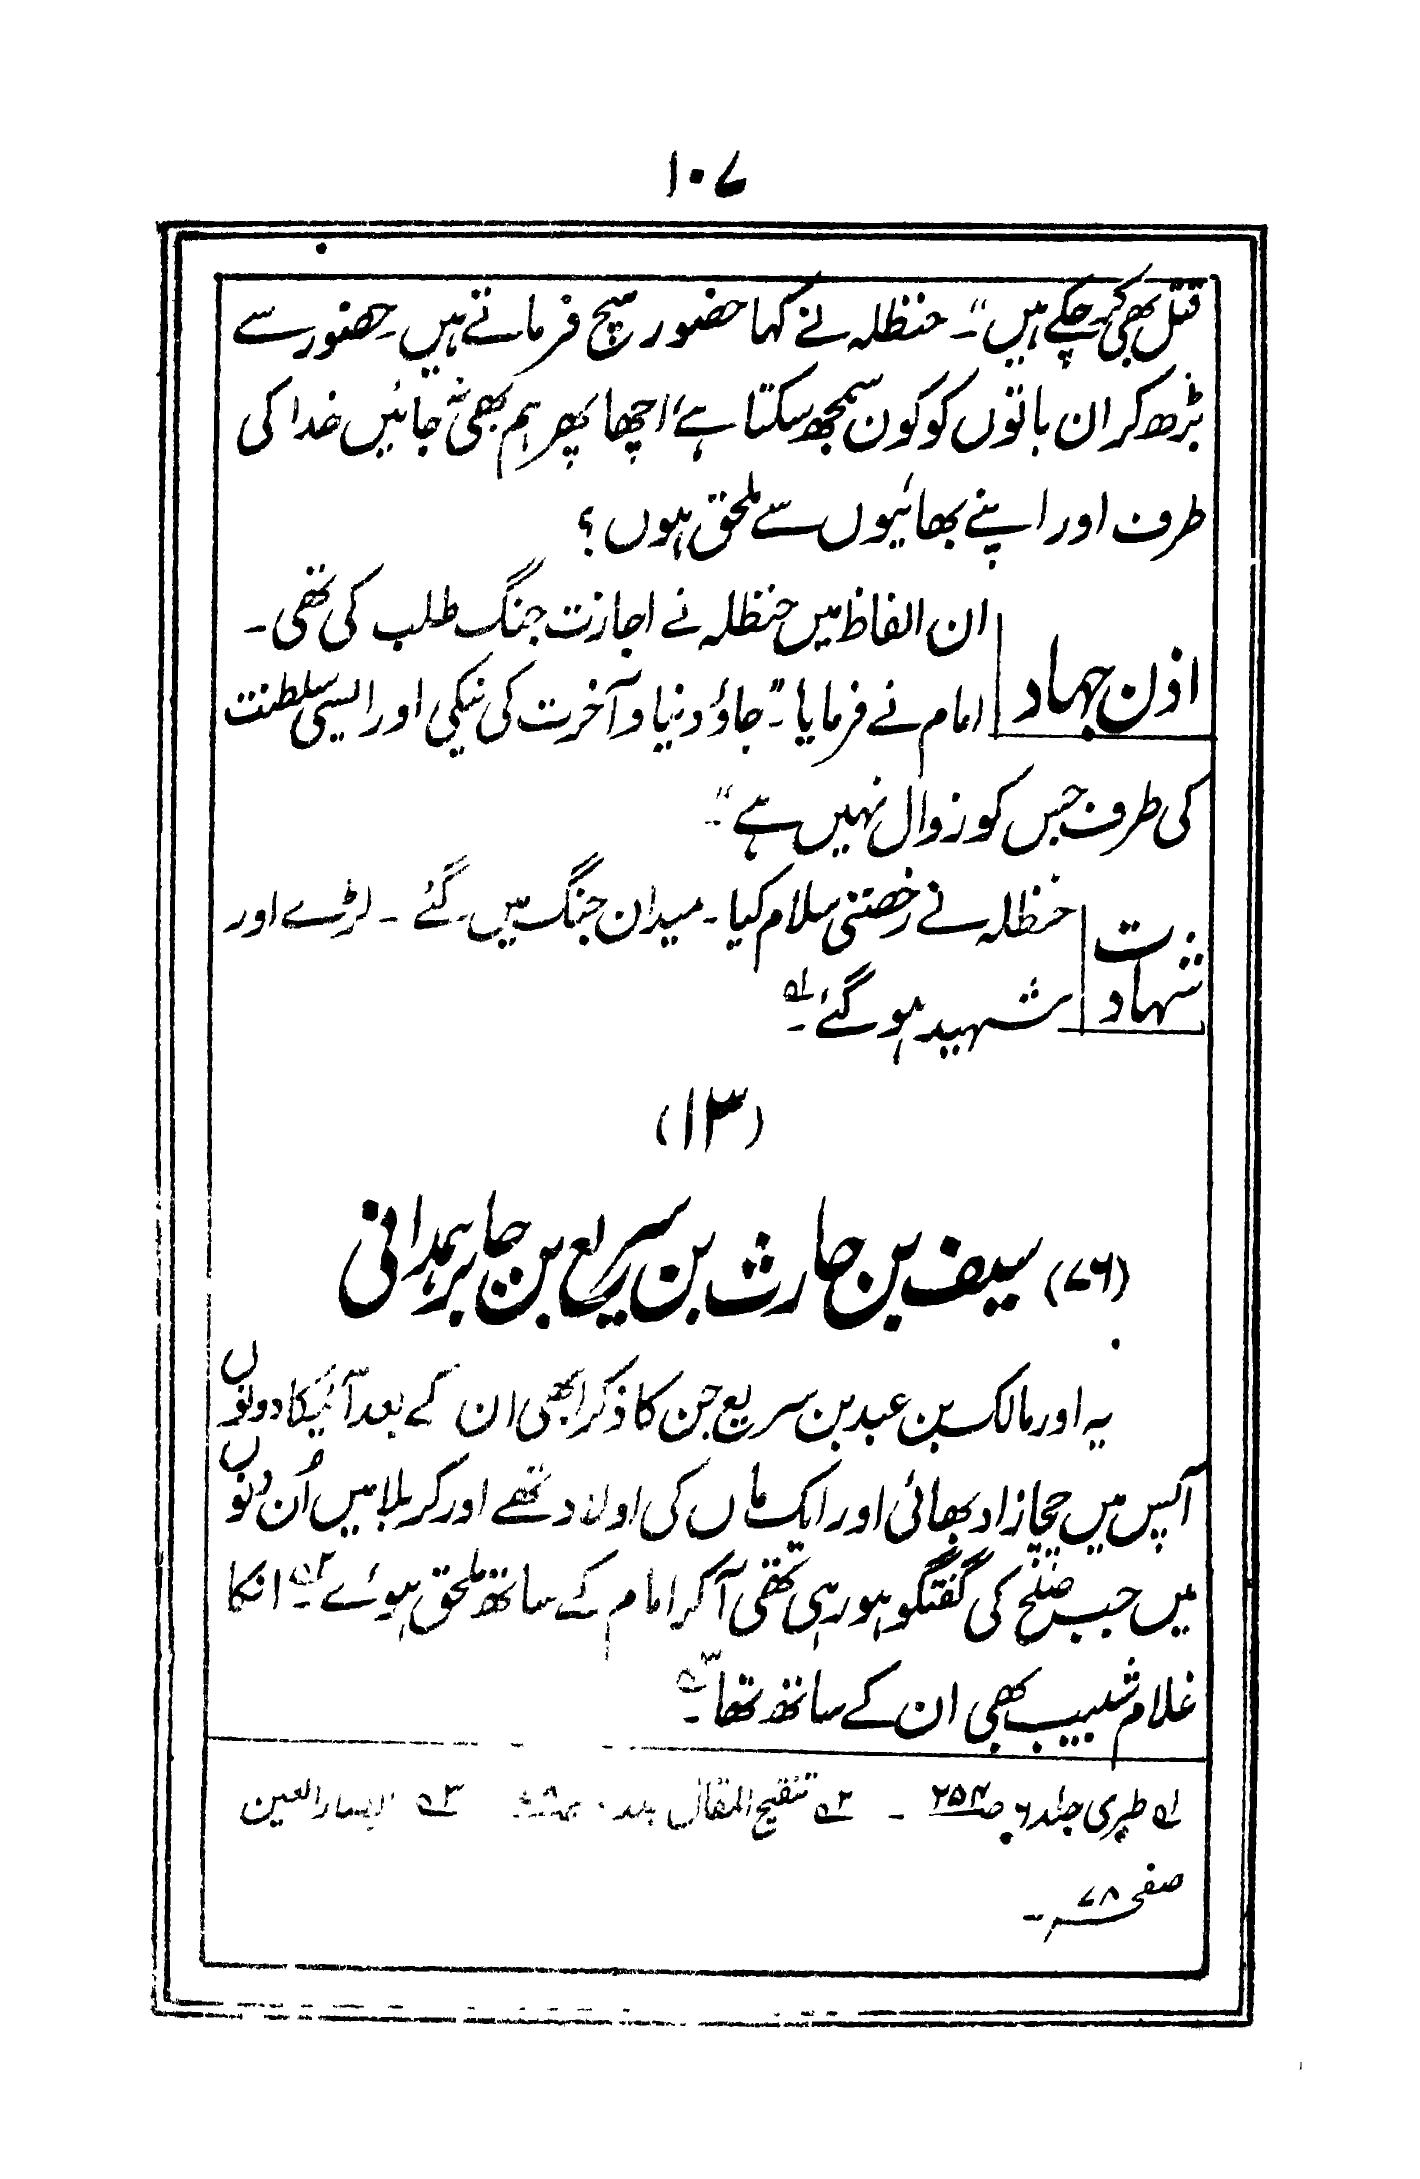 ۱۰۷
قتل بھی کر چکے ہیں"۔ حنظلہ نے کہا حضور سچ فرماتے ہیں۔ حضور سے
بڑھ کر ان باتوں کو کون سمجھ سکتا ہے، اچھا پھر ہم بھی نہ جائیں خدا کی
طرف اور اپنے بھائیوں سے ملحق ہوں؟
اذن جہاد
ان الفاظ میں حنظلہ نے اجازت جنگ طلب کی تھی۔
امام نے فرمایا۔ "جاؤ دنیا و آخرت کی نیکی اور ایسی سلطنت
کی طرف جس کو زوال نہیں ہے"۔
شہادت
حنظلہ نے رخصتی سلام کیا۔ میدان جنگ میں گئے۔ لڑے اور
شہید ہو گئے۔ لہ
(۱۳)
(۷۶) سیف بن حارث بن سریع بن جابر ہمدانی
یہ اور مالک بن عبد بن سریع جن کا ذکر ابھی ان کے بعد آئیگا دونوں
آپس میں چچازاد بھائی اور ایک ماں کی اولاد تھے اور کربلا میں اُن دنوں
میں جب صلح کی گفتگو ہو رہی تھی آکر امام کے ساتھ ملحق ہوئے۔ ۲ہ انکا
غلام شبیب بھی ان کے ساتھ تھا۔ ۳ہ
لہ طبری جلد ۶ ص۲۵۴۔ ۲ہ تنقیح المقال جلد ۳ہ ابصار العین
صفحہ ۷۸۔